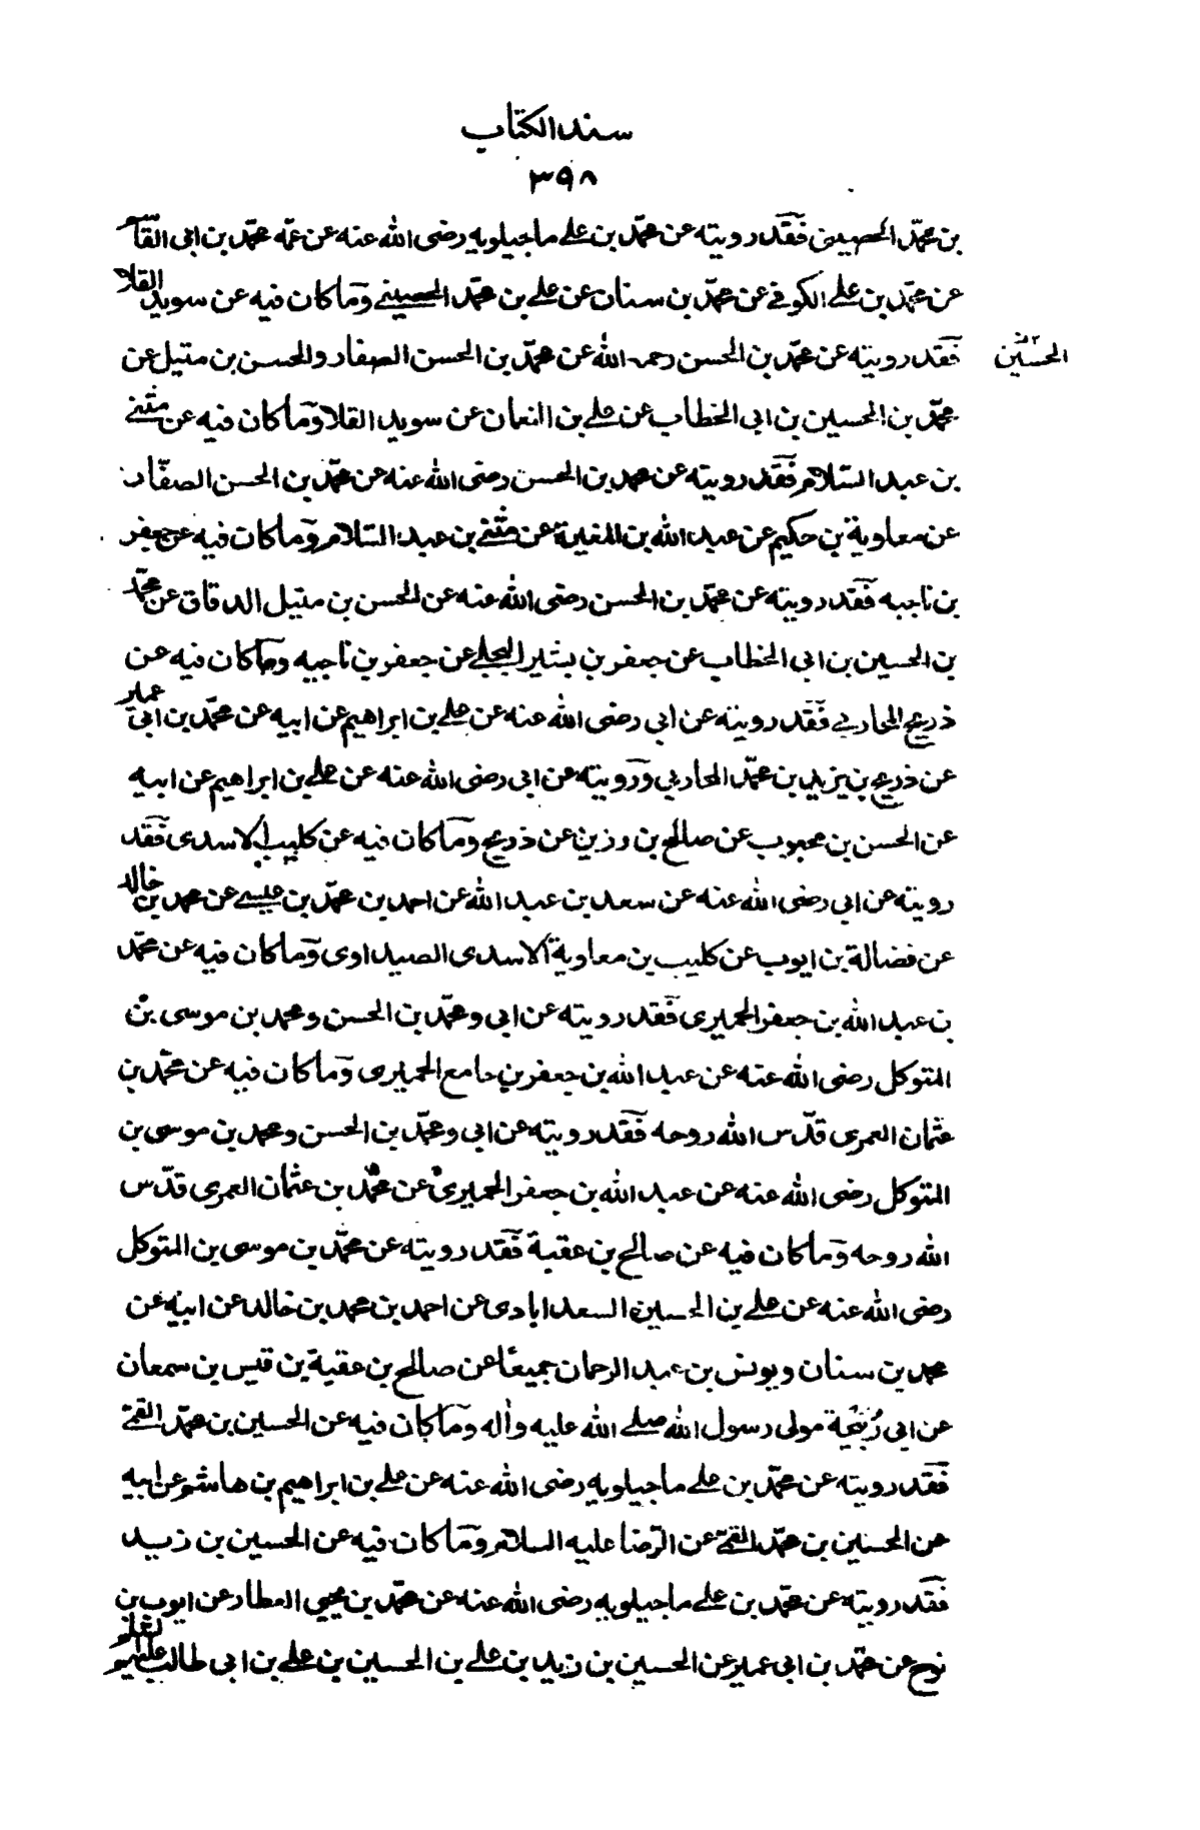 سند الكتاب
٣٩٨
بن محمّد الحصينى فَقَد رويته عن محمّد بن على ماجيلويه رضى الله عنه عن عمّه محمّد بن ابى القاسم
عن محمّد بن على الكوفى عن محمّد بن سنان عن على بن محمّد الحصينى وَما كان فيه عن سويد القلا
فَقَد رويته عن محمّد بن الحسن رحمه الله عن محمّد بن الحسن الصفار والحسن بن متيل عن
الحسين
محمّد بن الحسين بن ابى الخطاب عن على بن النعمان عن سويد القلا وَما كان فيه عن مثنى
بن عبد السّلام فَقَد رويته عن محمد بن الحسن رضى الله عنه عن محمّد بن الحسن الصفّار
عن معاوية بن حكيم عن عبد الله بن المغيرة عن مثنى بن عبد السّلام وَما كان فيه عن جعفر
بن ناجيه فَقَد رويته عن محمّد بن الحسن رضى الله عنه عن الحسن بن متيل الدقاق عن محمّد
بن الحسين بن ابى الخطاب عن جعفر بن بشير البجلى عن جعفر بن ناجيه وما كان فيه عن
ذريح المحاربى فَقَد رويته عن ابى رضى الله عنه عن على بن ابراهيم عن ابيه عن محمّد بن ابى عمير
عن ذريح بن يزيد بن محمّد المحاربي وَرَويته عن ابى رضى الله عنه عن على بن ابراهيم عن ابيه
عن الحسن بن محبوب عن صالح بن رزين عن ذريح وَما كان فيه عن كليب الاسدى فَقَد
رويته عن ابى رضى الله عنه عن سعد بن عبد الله عن احمد بن محمّد بن عيسى عن محمد بن خالد
عن فضالة بن ايوب عن كليب بن معاوية الاسدى الصيداوى وَما كان فيه عن محمّد
بن عبد الله بن جعفر الحميرى فَقَد رويته عن ابى ومحمّد بن الحسن ومحمد بن موسى بن
المتوكل رضى الله عنه عن عبد الله بن جعفر بن جامع الحميرى وَما كان فيه عن محمّد بن
عثمان العمرى قدّس الله روحه فَقَد رويته عن ابى ومحمّد بن الحسن ومحمد بن موسى بن
المتوكل رضى الله عنه عن عبد الله بن جعفر الحميرى عن محمّد بن عثمان العمرى قدّس
الله روحه وَما كان فيه عن صالح بن عقبة فَقَد رويته عن محمّد بن موسى بن المتوكل
رضى الله عنه عن على بن الحسين السعدابادى عن احمد بن محمد بن خالد عن ابيه عن
محمد بن سنان ويونس بن عبد الرحمان جميعًا عن صالح بن عقبة بن قيس بن سمعان
عن ابى رُبَيْحَة مولى رسول الله صلى الله عليه واله وَما كان فيه عن الحسين بن محمّد القمّى
فَقَد رويته عن محمّد بن على ماجيلويه رضى الله عنه عن على بن ابراهيم بن هاشم عن ابيه
عن الحسين بن محمّد القمّى عن الرّضا عليه السلام وَما كان فيه عن الحسين بن زيد
فَقَد رويته عن محمّد بن على ماجيلويه رضى الله عنه عن محمّد بن يحيى العطار عن ايوب بن
نوح عن محمّد بن ابى عمير عن الحسين بن زيد بن على بن الحسين بن على بن ابى طالب عليهم